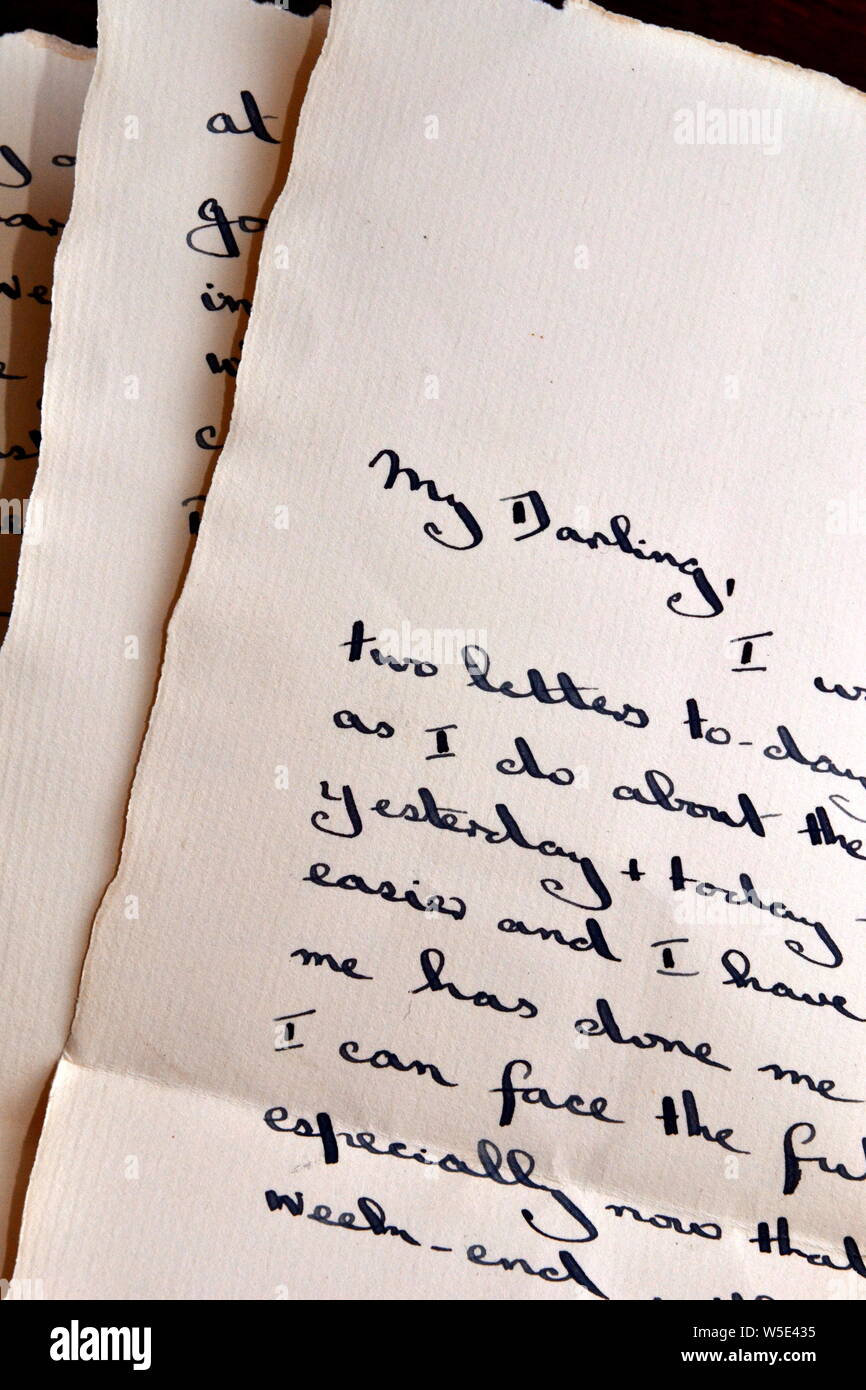 at
go
in
My Darling,
I
two letters to-day
as I do about the
yesterday + today -
easier and I have
me has done me
I can face the
especially now that
week-end
alamy
alamy
Image ID: W5E435
www.alamy.com